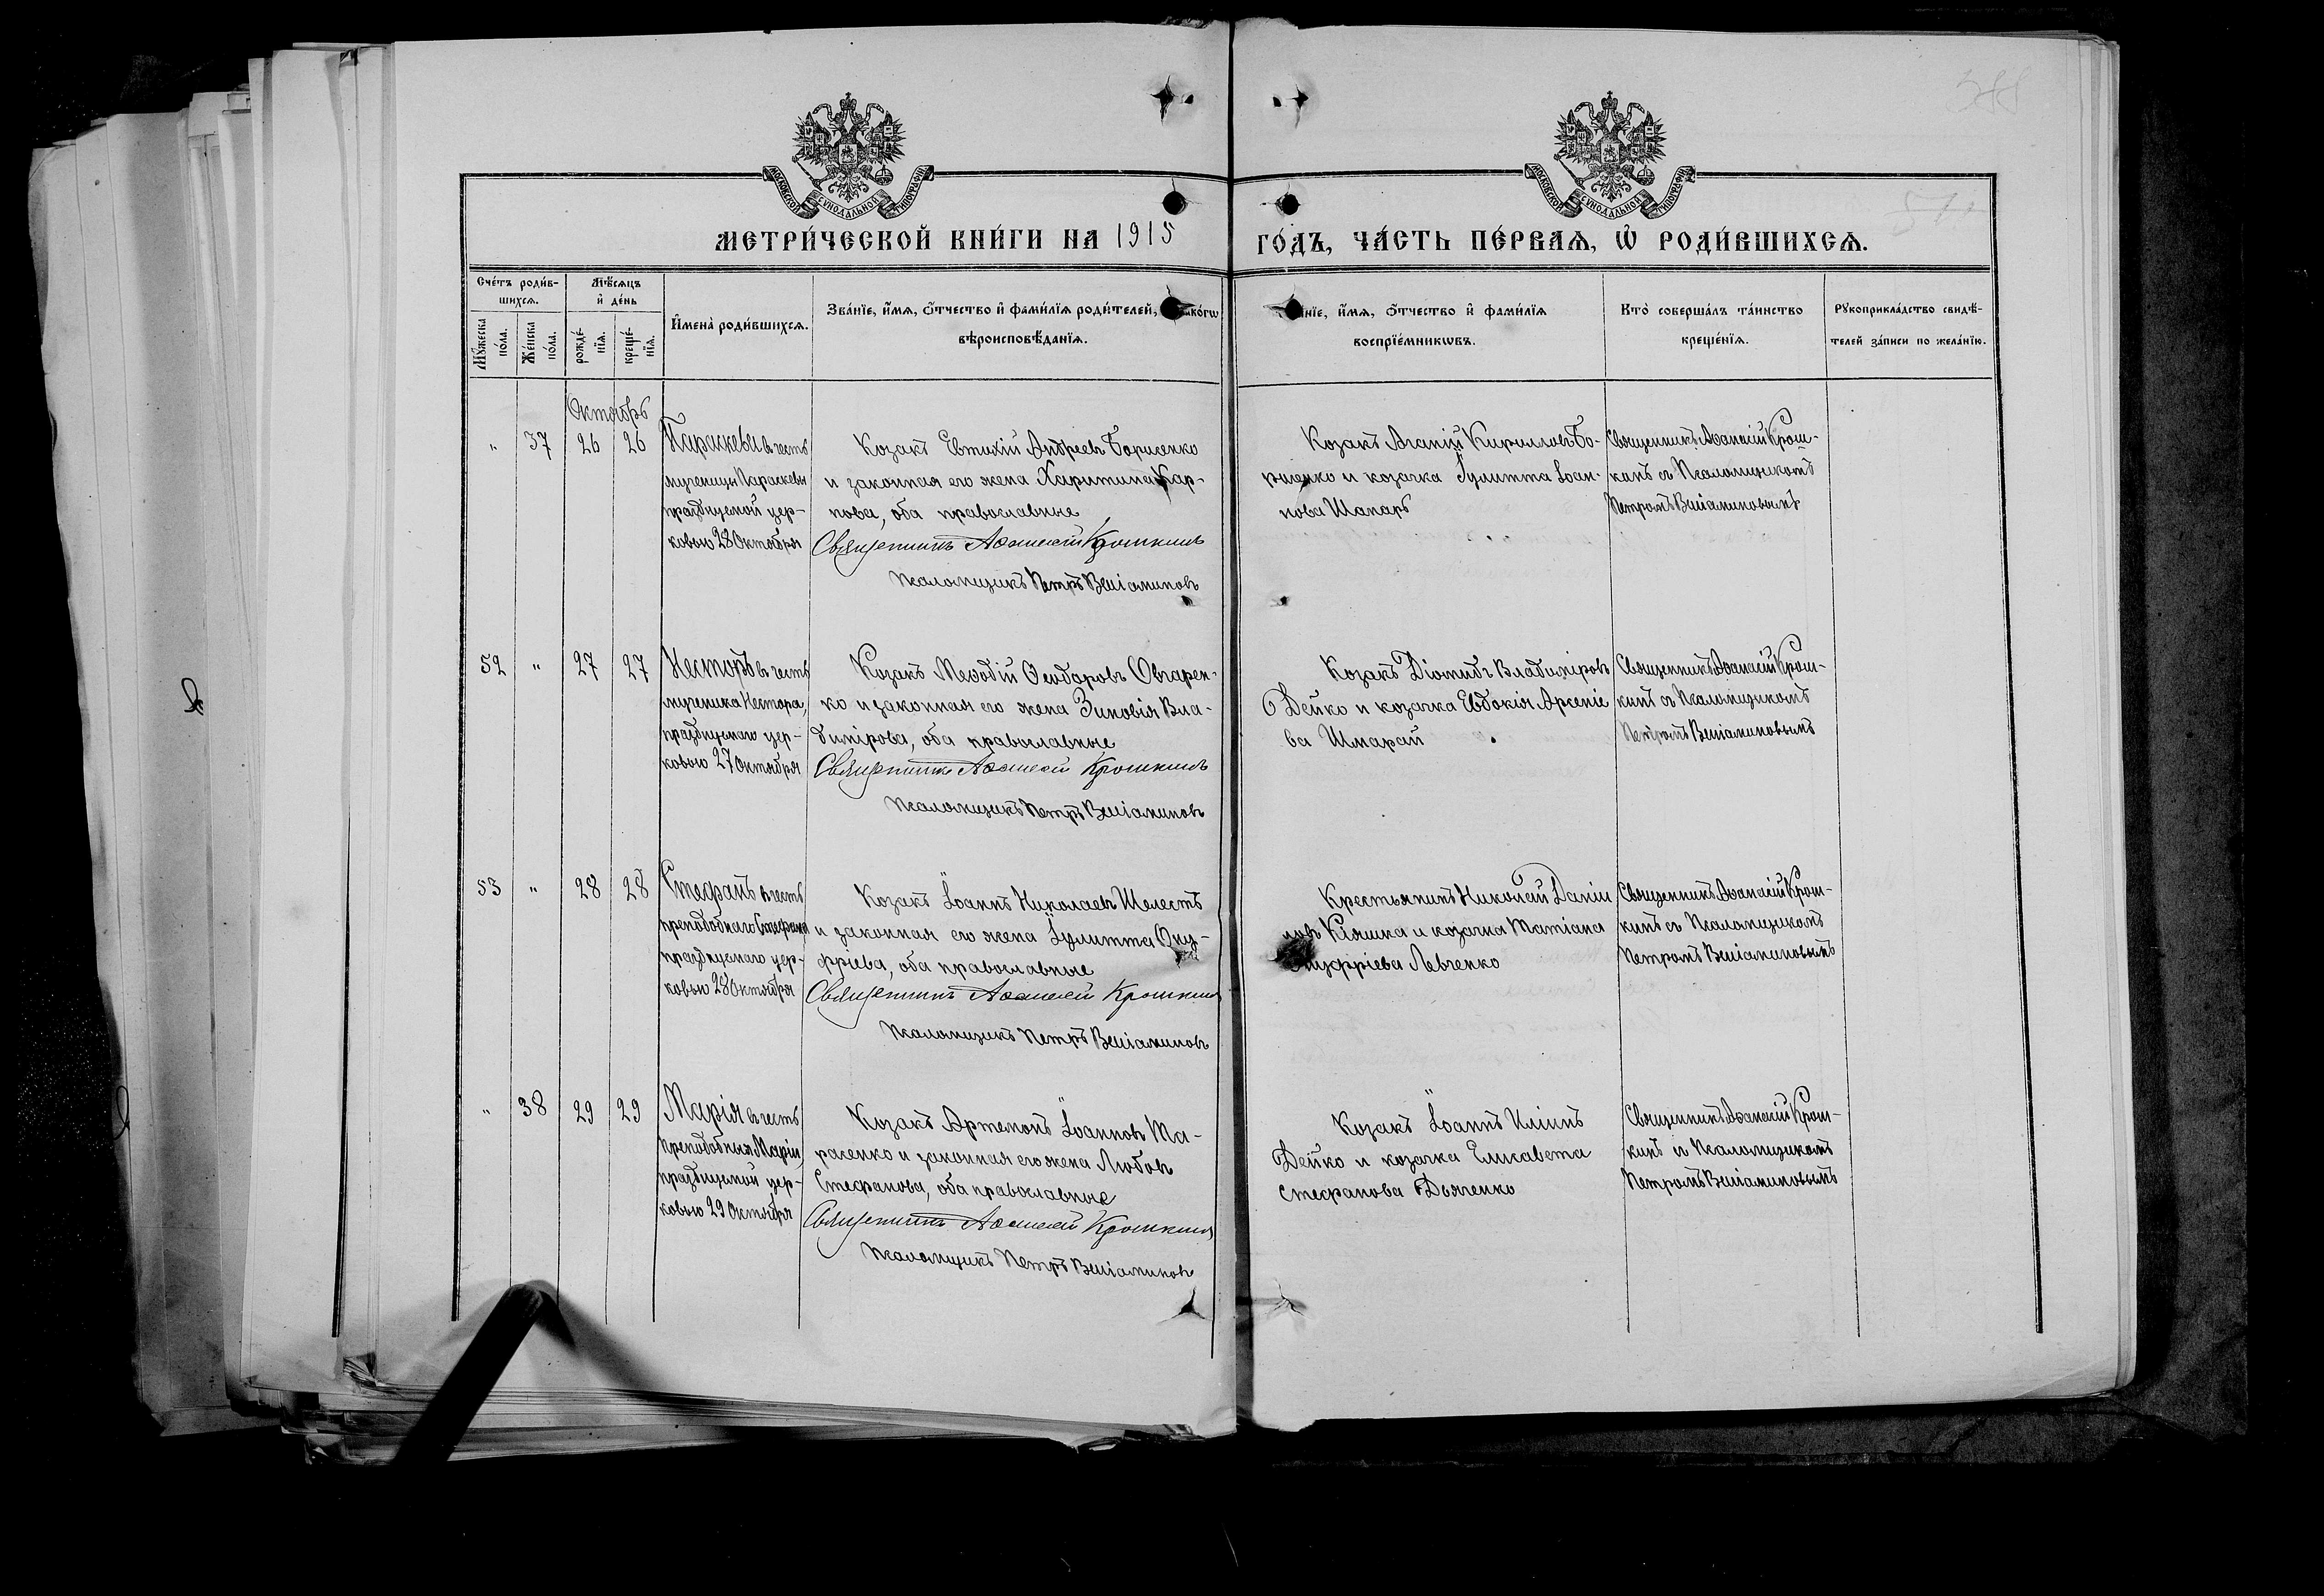 МОСКОВСКОЙ СУНОДАЛЬНОЙ ТИПОГРАФІИ
МОСКОВСКОЙ СУНОДАЛЬНОЙ ТИПОГРАФІИ
МЕТРИ́ЧЕСКОЙ КНИ́ГИ НА 1915 ГО́ДЪ, ЧА́СТЬ ПЕ́РВАѦ, Ѡ РОДИ́ВШИХСѦ.
Сче́тъ роди́в-
шихсѧ.
Мꙋ́жеска по́ла.
Же́нска по́ла.
Мѣ́сѧцъ
и҆ де́нь
рожде́-
нїѧ.
креще́-
нїѧ.
И҆мена̀ роди́вшихсѧ.
Зва́нїе, и҆́мѧ, ѻ҆́тчество и҆ фами́лїѧ роди́телей,
вѣроисповѣ́данїѧ.
и҆́мѧ, ѻ҆́тчество и҆ фами́лїѧ
воспрїе́мникѡвъ.
Кто̀ соверша́лъ та́инство
креще́нїѧ.
Рꙋкоприкла́дство свидѣ́-
телей за́писи по жела́нїю.
Октябрь
" 37 26 26
Параскева въ честь
мученицы Параскевы
празднуемой цер-
ковью 28 Октября
Козакъ Евтихій Андреевъ Борисенко
и законная его жена Харитина Кар-
пова, оба православные
Священникъ Аѳанасій Крошкинъ
Псаломщикъ Петръ Веніаминовъ
Козакъ Агапій Кирилловъ Бо-
рисенко и козачка Іулитта Іоан-
нова Шапарь
Священникъ Аѳанасій Крош-
кинъ съ Псаломщикомъ
Петромъ Веніаминовымъ
52 " 27 27
Несторъ въ честь
мученика Нестора,
празднуемаго цер-
ковью 27 Октября
Козакъ Меѳодій Ѳеодоровъ Овчарен-
ко и законная его жена Зиновія Вла-
димірова, оба православные
Священникъ Аѳанасій Крошкинъ
Псаломщикъ Петръ Веніаминовъ
Козакъ Діомидъ Владиміровъ
Дейко и козачка Евдокія Арсеніе
ва Шмарай
Священникъ Аѳанасій Крош-
кинъ съ Псаломщикомъ
Петромъ Веніаминовымъ
53 " 28 28
Стефанъ въ честь
преподобнаго Стефана
празднуемаго цер-
ковью 28 Октября
Козакъ Іоаннъ Николаевъ Шелестъ
и законная его жена Іулитта Ону-
фріева, оба православные
Священникъ Аѳанасій Крошкинъ
Псаломщикъ Петръ Веніаминовъ
Крестьянинъ Николай Даніи
ловъ Кіяшка и козачка Татіана
Онуфріева Левченко
Священникъ Аѳанасій Крош-
кинъ съ Псаломщикомъ
Петромъ Веніаминовымъ
" 38 29 29
Марія въ честь
Преподобныя Маріи,
празднуемой цер-
ковью 29 Октября
Козакъ Артемонъ Іоанновъ Та-
расенко и законная его жена Любовь
Стефанова, оба православные
Священникъ Аѳанасій Крошкинъ
Псаломщикъ Петръ Веніаминовъ
Козакъ Іоаннъ Иліинъ
Дейко и козачка Елисавета
Стефанова Дьяченко
Священникъ Аѳанасій Крош-
кинъ съ Псаломщикомъ
Петромъ Веніаминовымъ